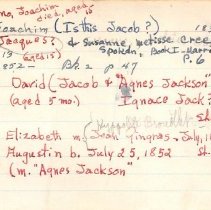 no, Joachim
died, aged
Joachim (Is this Jacob?) 18
Jacques? & Susanne, metisse Cree
13 (aged 15) Spokan, Book I-Marri
1852 - Bk 2 p 47 P. 6
David (Jacob & "Agnes Jackson"
(aged 5 mo.) Ignace Jack?
Sh
Elizabeth m. Jos. Gingras, July, 11
Augustin b. July 25, 1852 Sh
(m. "Agnes Jackson"